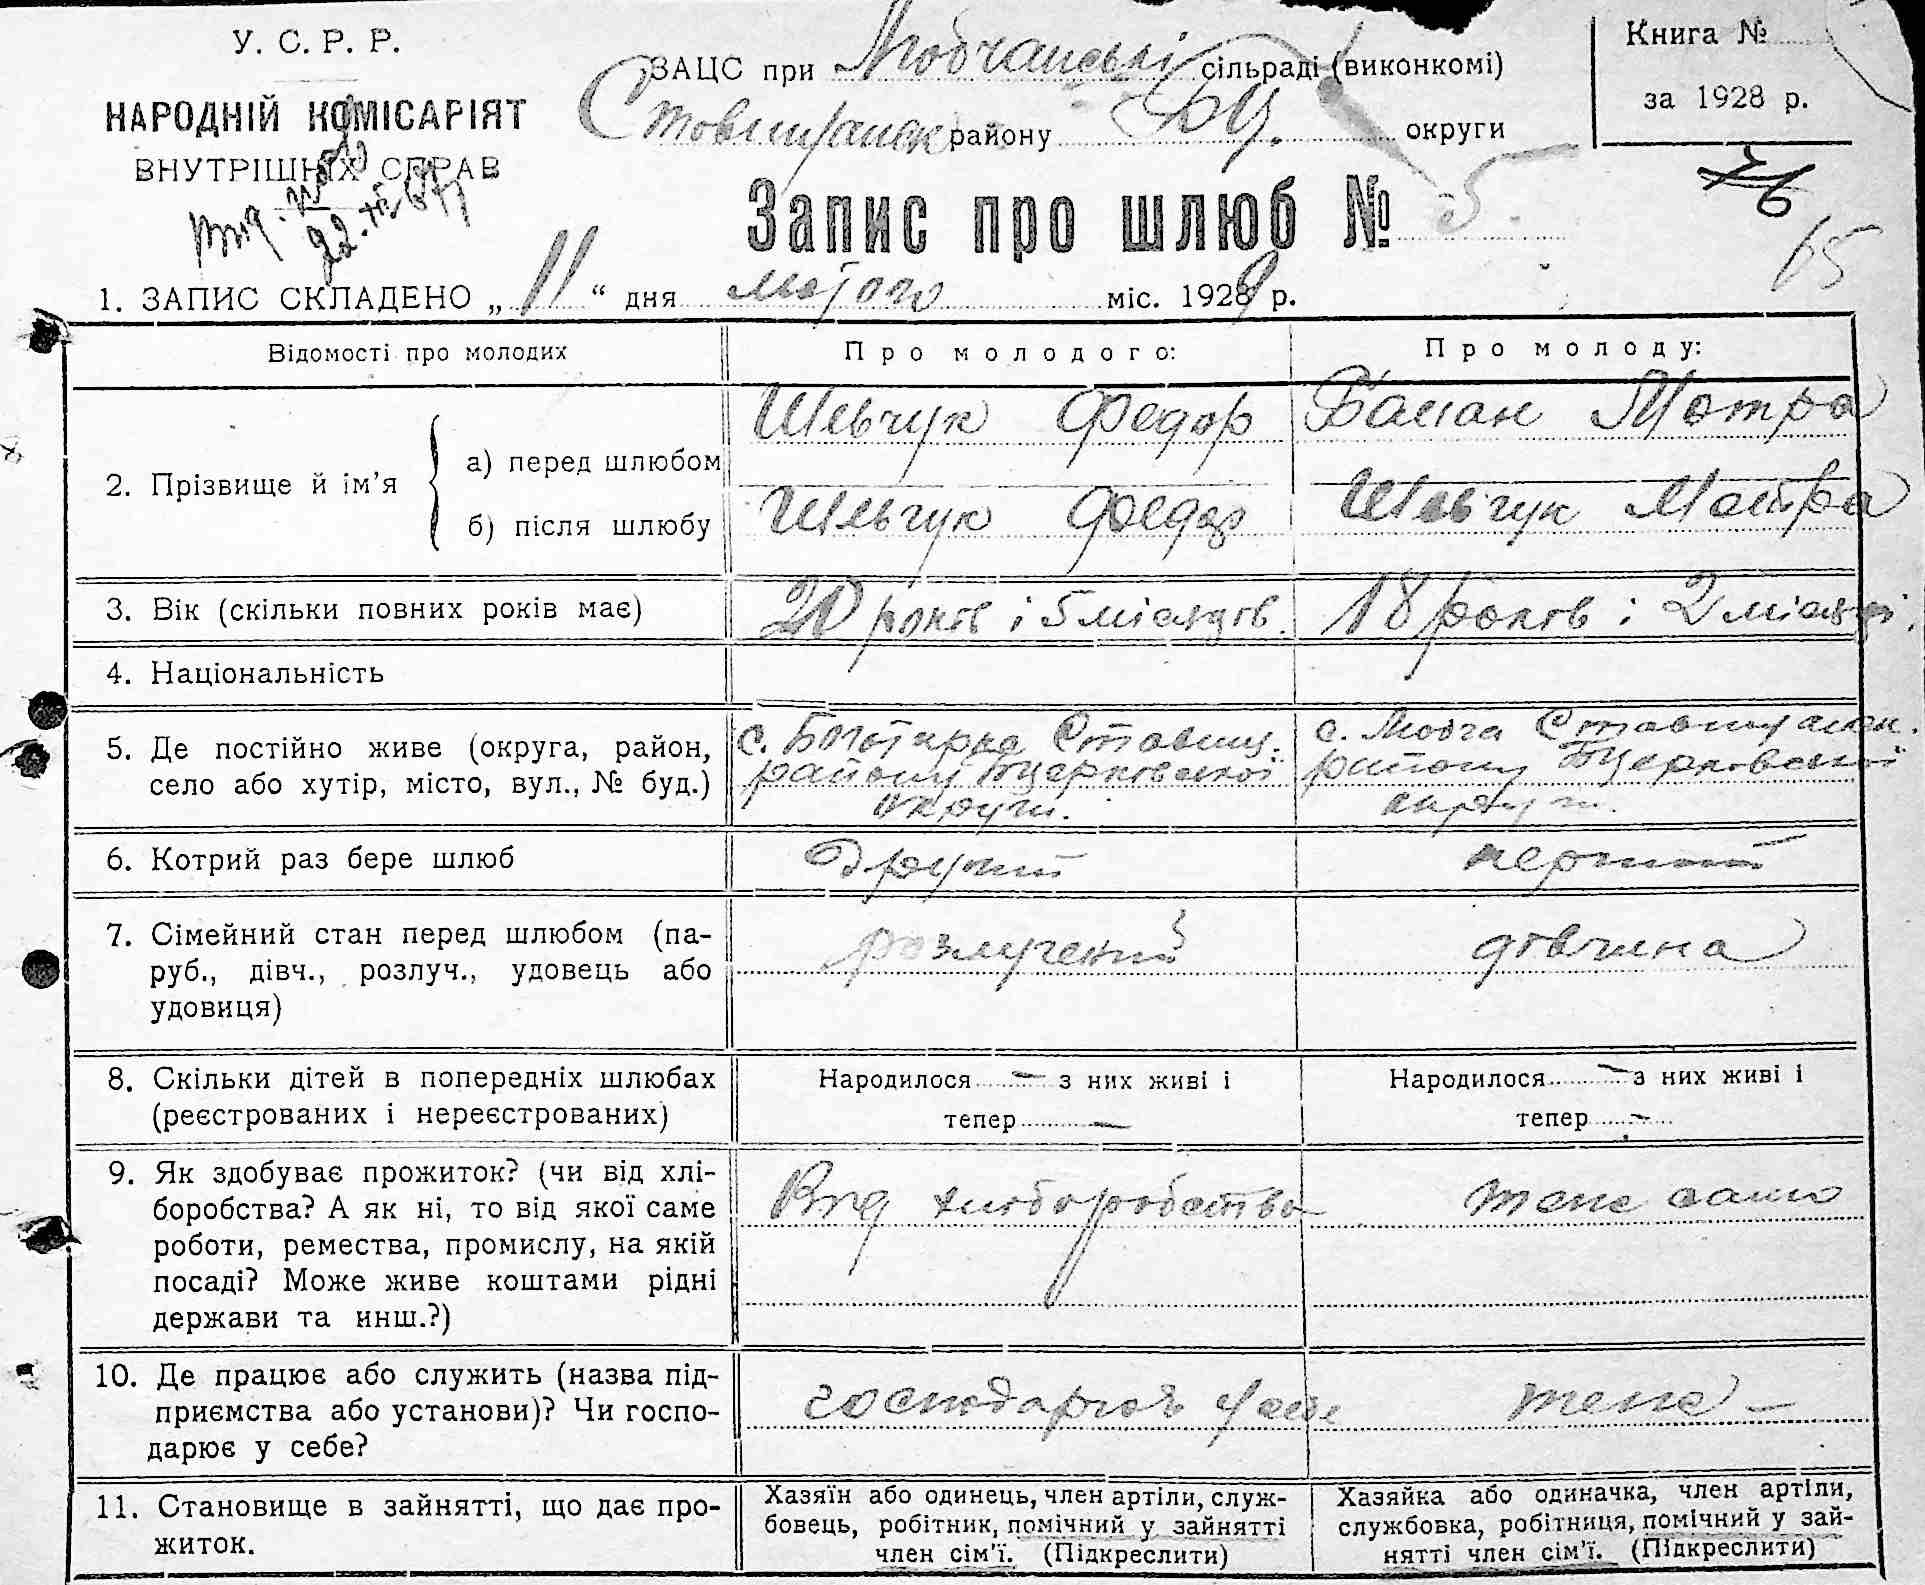 У. С. Р. Р.
НАРОДНІЙ КОМІСАРІЯТ
ВНУТРІШНІХ СПРАВ
ЗАЦС при сільраді (виконкомі)
району БЦ. округи
Книга №
за 1928 р.
76
65
Запис про шлюб № 5.
1. ЗАПИС СКЛАДЕНО „ 11 “ дня лютого міс. 1929 р.
Відомості про молодих
Про молодого:
Про молоду:
2. Прізвище й ім’я
а) перед шлюбом
Шевчук Федор
Мотра
б) після шлюбу
Шевчук Федор
Шевчук Мотра
3. Вік (скільки повних років має)
20 років і 5 місяців.
18 років і 2 місяці.
4. Національність
5. Де постійно живе (округа, район,
село або хутір, місто, вул., № буд.)
с. Ставищ.
району Бцерковської
округи.
с. Ставищанськ.
району Бцерковської
округи.
6. Котрий раз бере шлюб
другий
перший
7. Сімейний стан перед шлюбом (па-
руб., дівч., розлуч., удовець або
удовиця)
розлучений
дівчина
8. Скільки дітей в попередніх шлюбах
(реєстрованих і нереєстрованих)
Народилося — з них живі і
тепер —
Народилося — з них живі і
тепер —
9. Як здобуває прожиток? (чи від хлі-
боробства? А як ні, то від якої саме
роботи, ремества, промислу, на якій
посаді? Може живе коштами рідні
держави та инш.?)
Від хліборобства
теж саме
10. Де працює або служить (назва під-
приємства або установи)? Чи госпо-
дарює у себе?
теж —
11. Становище в зайнятті, що дає про-
житок.
Хазяїн або одинець, член артіли, служ-
бовець, робітник, помічний у зайнятті
член сім’ї. (Підкреслити)
Хазяйка або одиначка, член артіли,
службовка, робітниця, помічний у зай-
нятті член сім’ї. (Підкреслити)